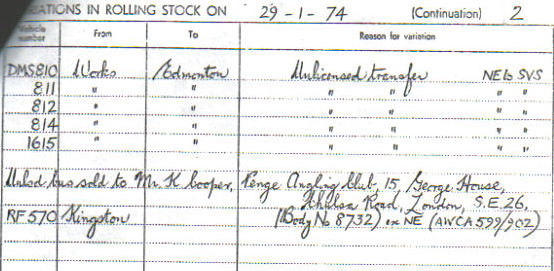 ATIONS IN ROLLING STOCK ON 29-1-74 (Continuation) 2
Vehicle number From To Reason for variation
DMS810 Works Edmonton Unlicensed transfer NEls SVS
811 " " " " " "
812 " " " " " "
814 " " " " " "
1615 " " " " " "
Unlcd bus sold to Mr. K Cooper, Penge Angling Club, 15, George House,
Road, London, S.E 26,
RF570 Kingston (Body No 8732) ex NE (AWCA 599/902)